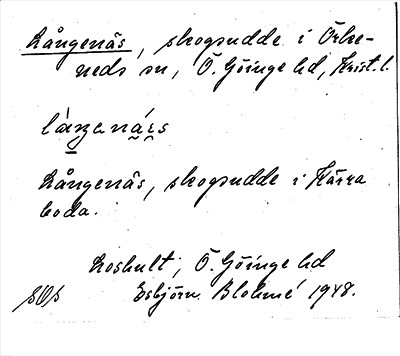 Långenäs, skogsudde i Örke-
neds sn, Ö. Göinge hd, Krist. l.
Långenäs, skogsudde i Kärra
boda.
Loshult, Ö. Göinge hd
Esbjörn Blohmé 1948.